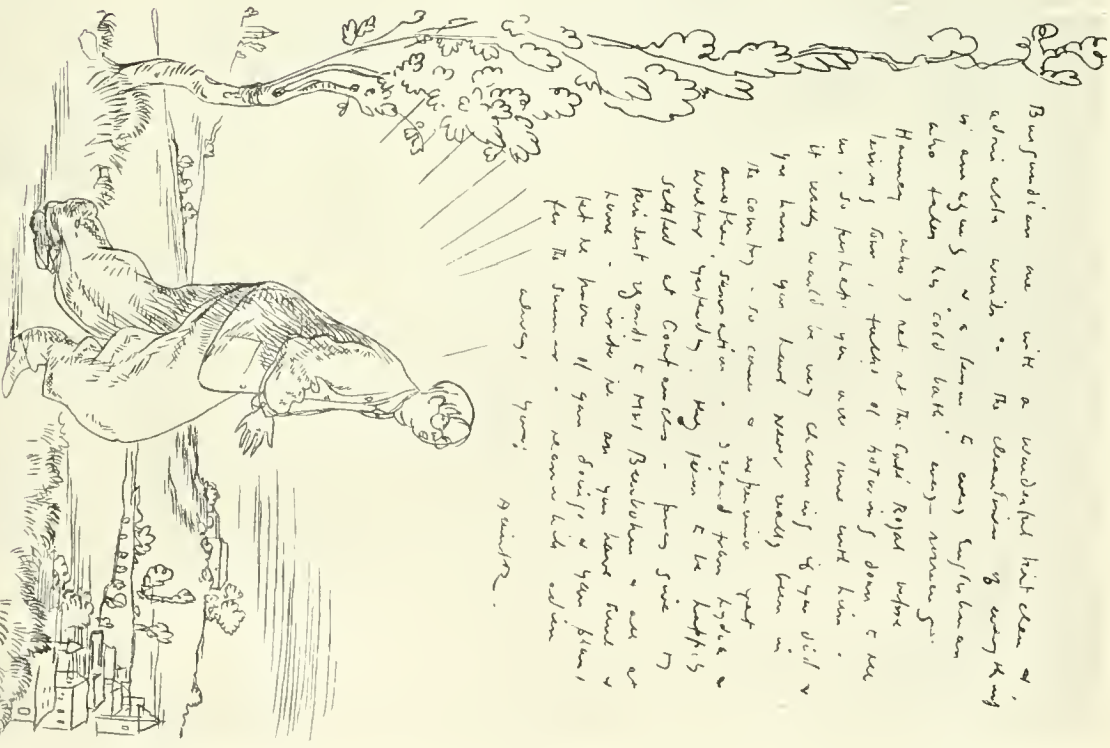 Burgundian one with a wonderful kitchen &
works. The cleanliness of everything
is amazing & a lesson to every Englishman
who takes 'his cold bath' every morning.
who I met at the Café Royal before
leaving town, talks of motoring down to see
us, so perhaps you will come with him.
it really would be very charming if you did &
you know you have never really been in
the country - so come & experience yet
another sensation. I heard from Lydia &
Walter yesterday. they seem to be happily
settled at Coutances - pray give my
kindest regards to Mrs Beerbohm & all at
home - write me an you have time &
let me know of your doings & your plans
for the summer - meanwhile adieu
always yours
Will R.